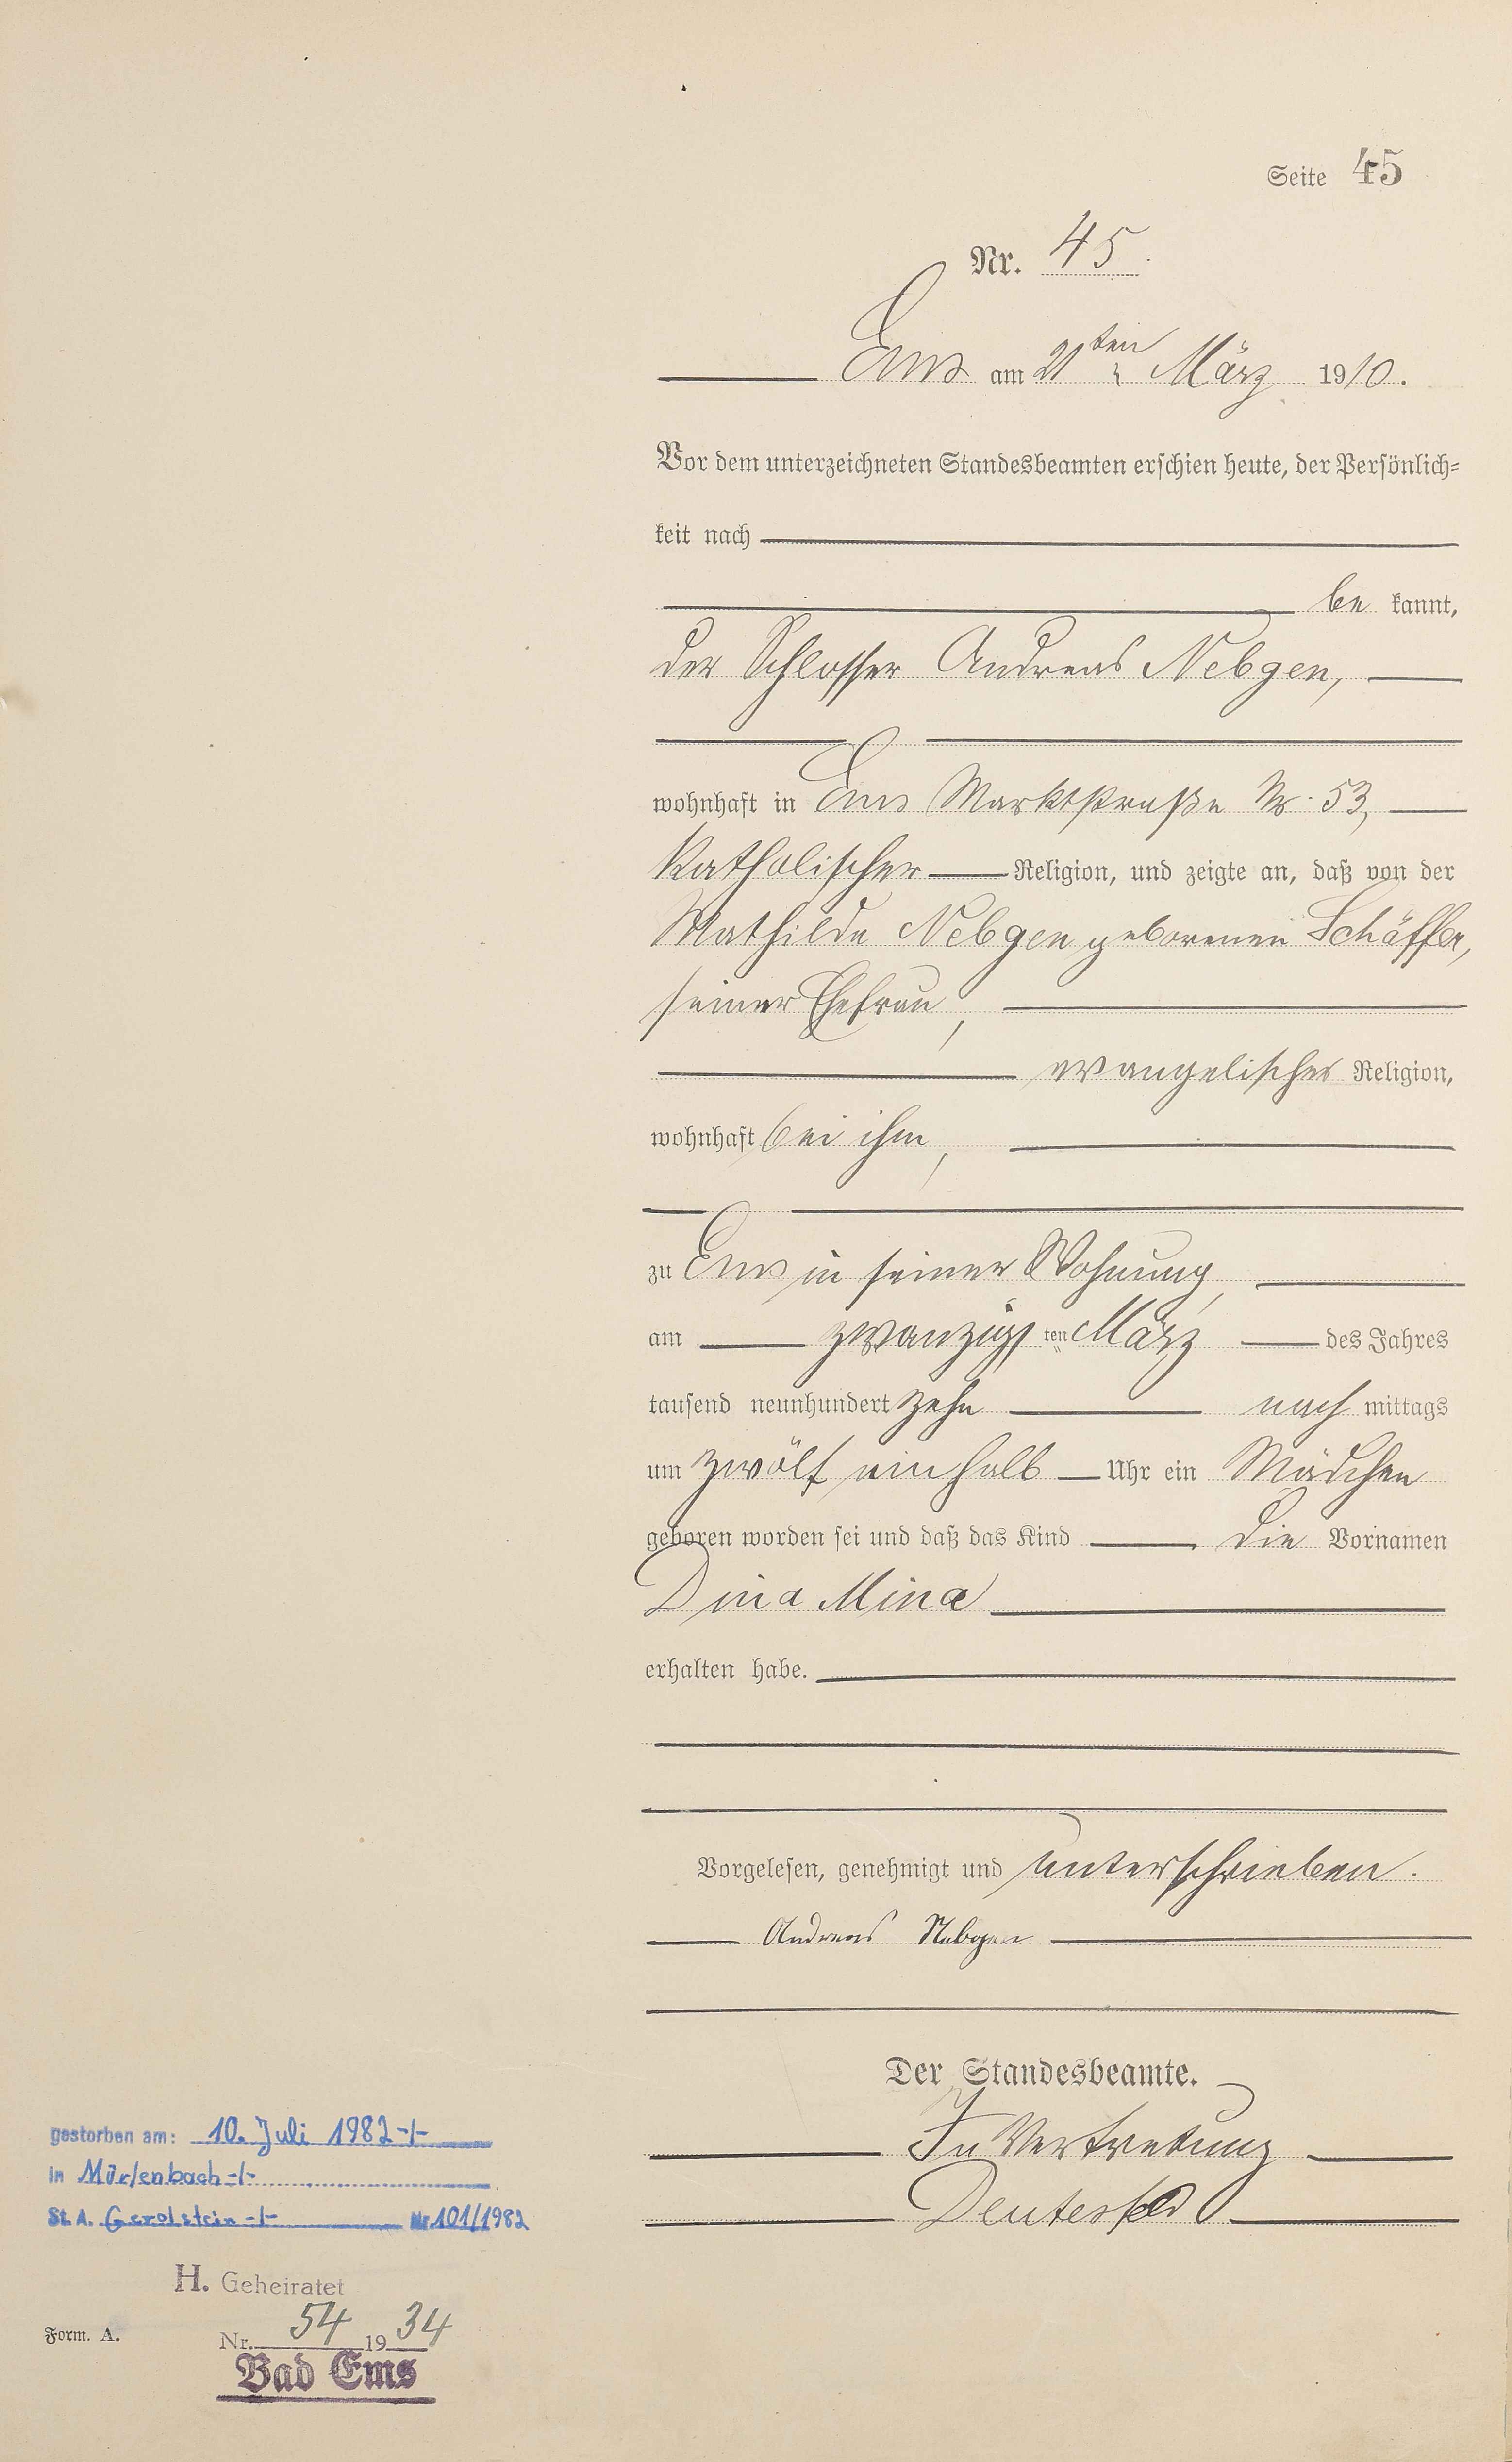 Seite 45
Nr. 45.
Ems am 21ten März 1910.
Vor dem unterzeichneten Standesbeamten erschien heute, der Persönlich-
keit nach
be kannt,
der Schlosser Andreas Nebgen,
wohnhaft in Ems Marktstraße Nr. 53,
katholischer Religion, und zeigte an, daß von der
Mathilde Nebgen geborenen Schäffer,
seiner Ehefrau,
evangelischer Religion,
wohnhaft bei ihm,
zu Ems in seiner Wohnung,
am zwanzigsten März des Jahres
tausend neunhundert zehn nach mittags
um zwölf ein halb Uhr ein Mädchen
geboren worden sei und daß das Kind die Vornamen
Dina Mina
erhalten habe.
Vorgelesen, genehmigt und unterschrieben.
Andreas Nebgen
Der Standesbeamte.
In Vertretung
gestorben am: 10. Juli 1982-/-
in Mürlenbach-/-
St. A. Gerolstein-/- Nr 101/1982
H. Geheiratet
Nr. 54 1934
Bad Ems
Form. A.